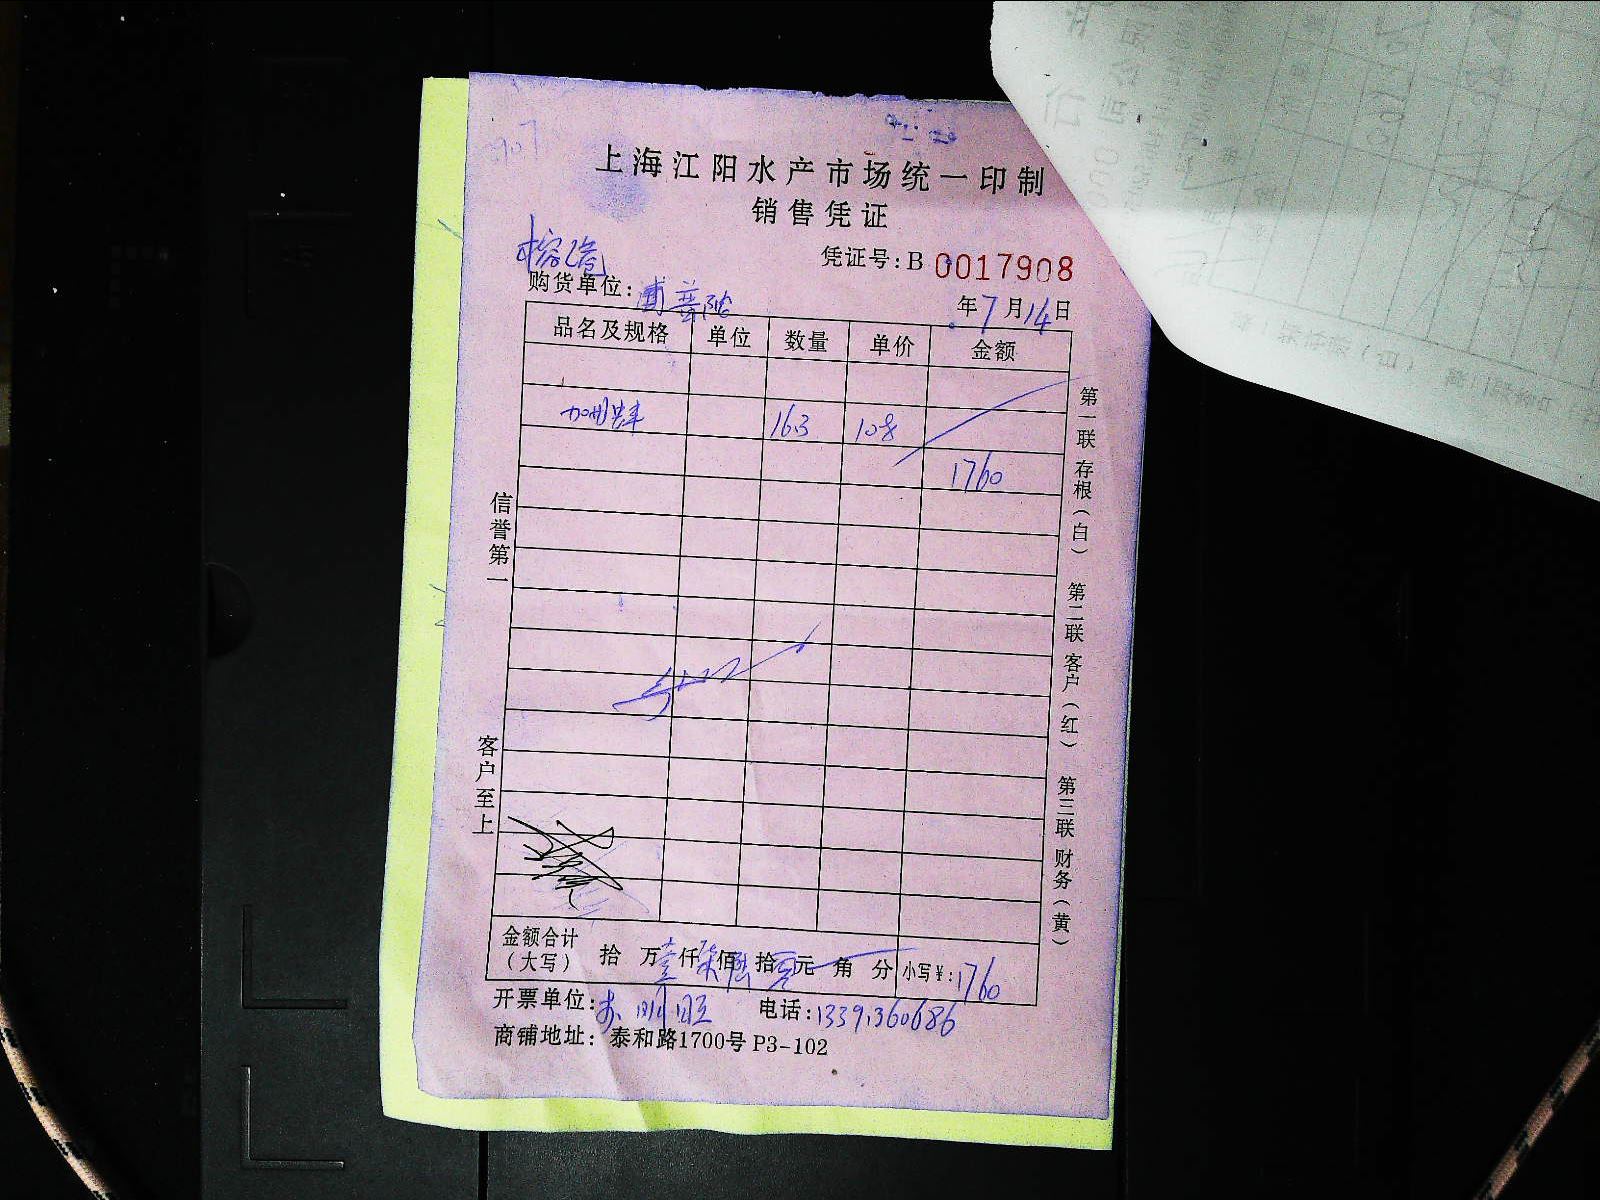 上海江阳水产市场统一印制
销售凭证
凭证号：B 0017908
购货单位：
年7月14日
品名及规格 单位 数量 单价 金额
16.3 108
1760
信誉第一
客户至上
第一联 存根（白） 第二联 客户（红） 第三联 财务（黄）
金额合计（大写） 拾 万壹仟柒佰陆拾零元 角 分 小写¥：1760
开票单位： 电话：13391360686
商铺地址：泰和路1700号 P3-102